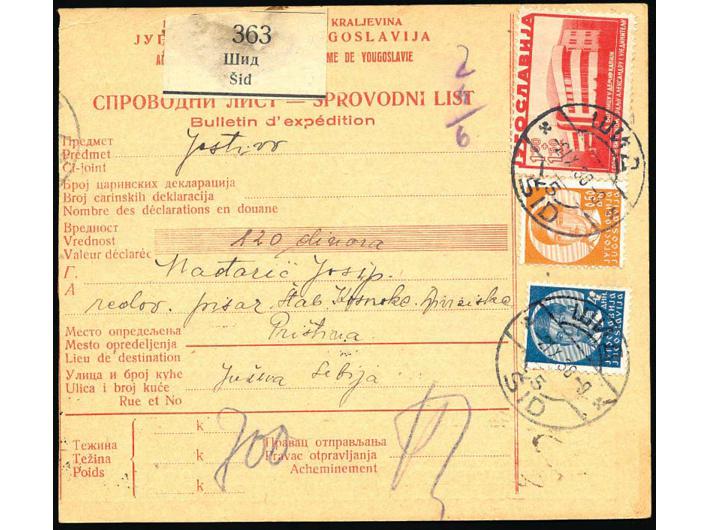 363
Шид
Šid
KRALJEVINA
СПРОВОДНИ ЛИСТ — SPROVODNI LIST
Bulletin d'expédition
Предмет
Predmet
Ci-joint
Број царинских декларација
Broj carinskih deklaracija
Nombre des déclarations en douane
Вредност
Vrednost
Valeur déclarée
120 dinora
Г.
Mađarić Josip.
А
redov. pisar Štab Kosovske
Priština
Место опредељења
Mesto opredeljenja
Lieu de destination
Улица и број куће
Ulica i broj kuće
Rue et No
Južna Srbija
Тежина
Težina
Poids
k
k
k
700
Правац отправљања
Pravac otpravljanja
Acheminement
ЈУГОСЛАВИЈА
ШИД
ŠID
ЈУГОСЛАВИЈА
JUGOSLAVIJA
ЈУГОСЛАВИЈА
JUGOSLAVIJA
ШИД
ŠID